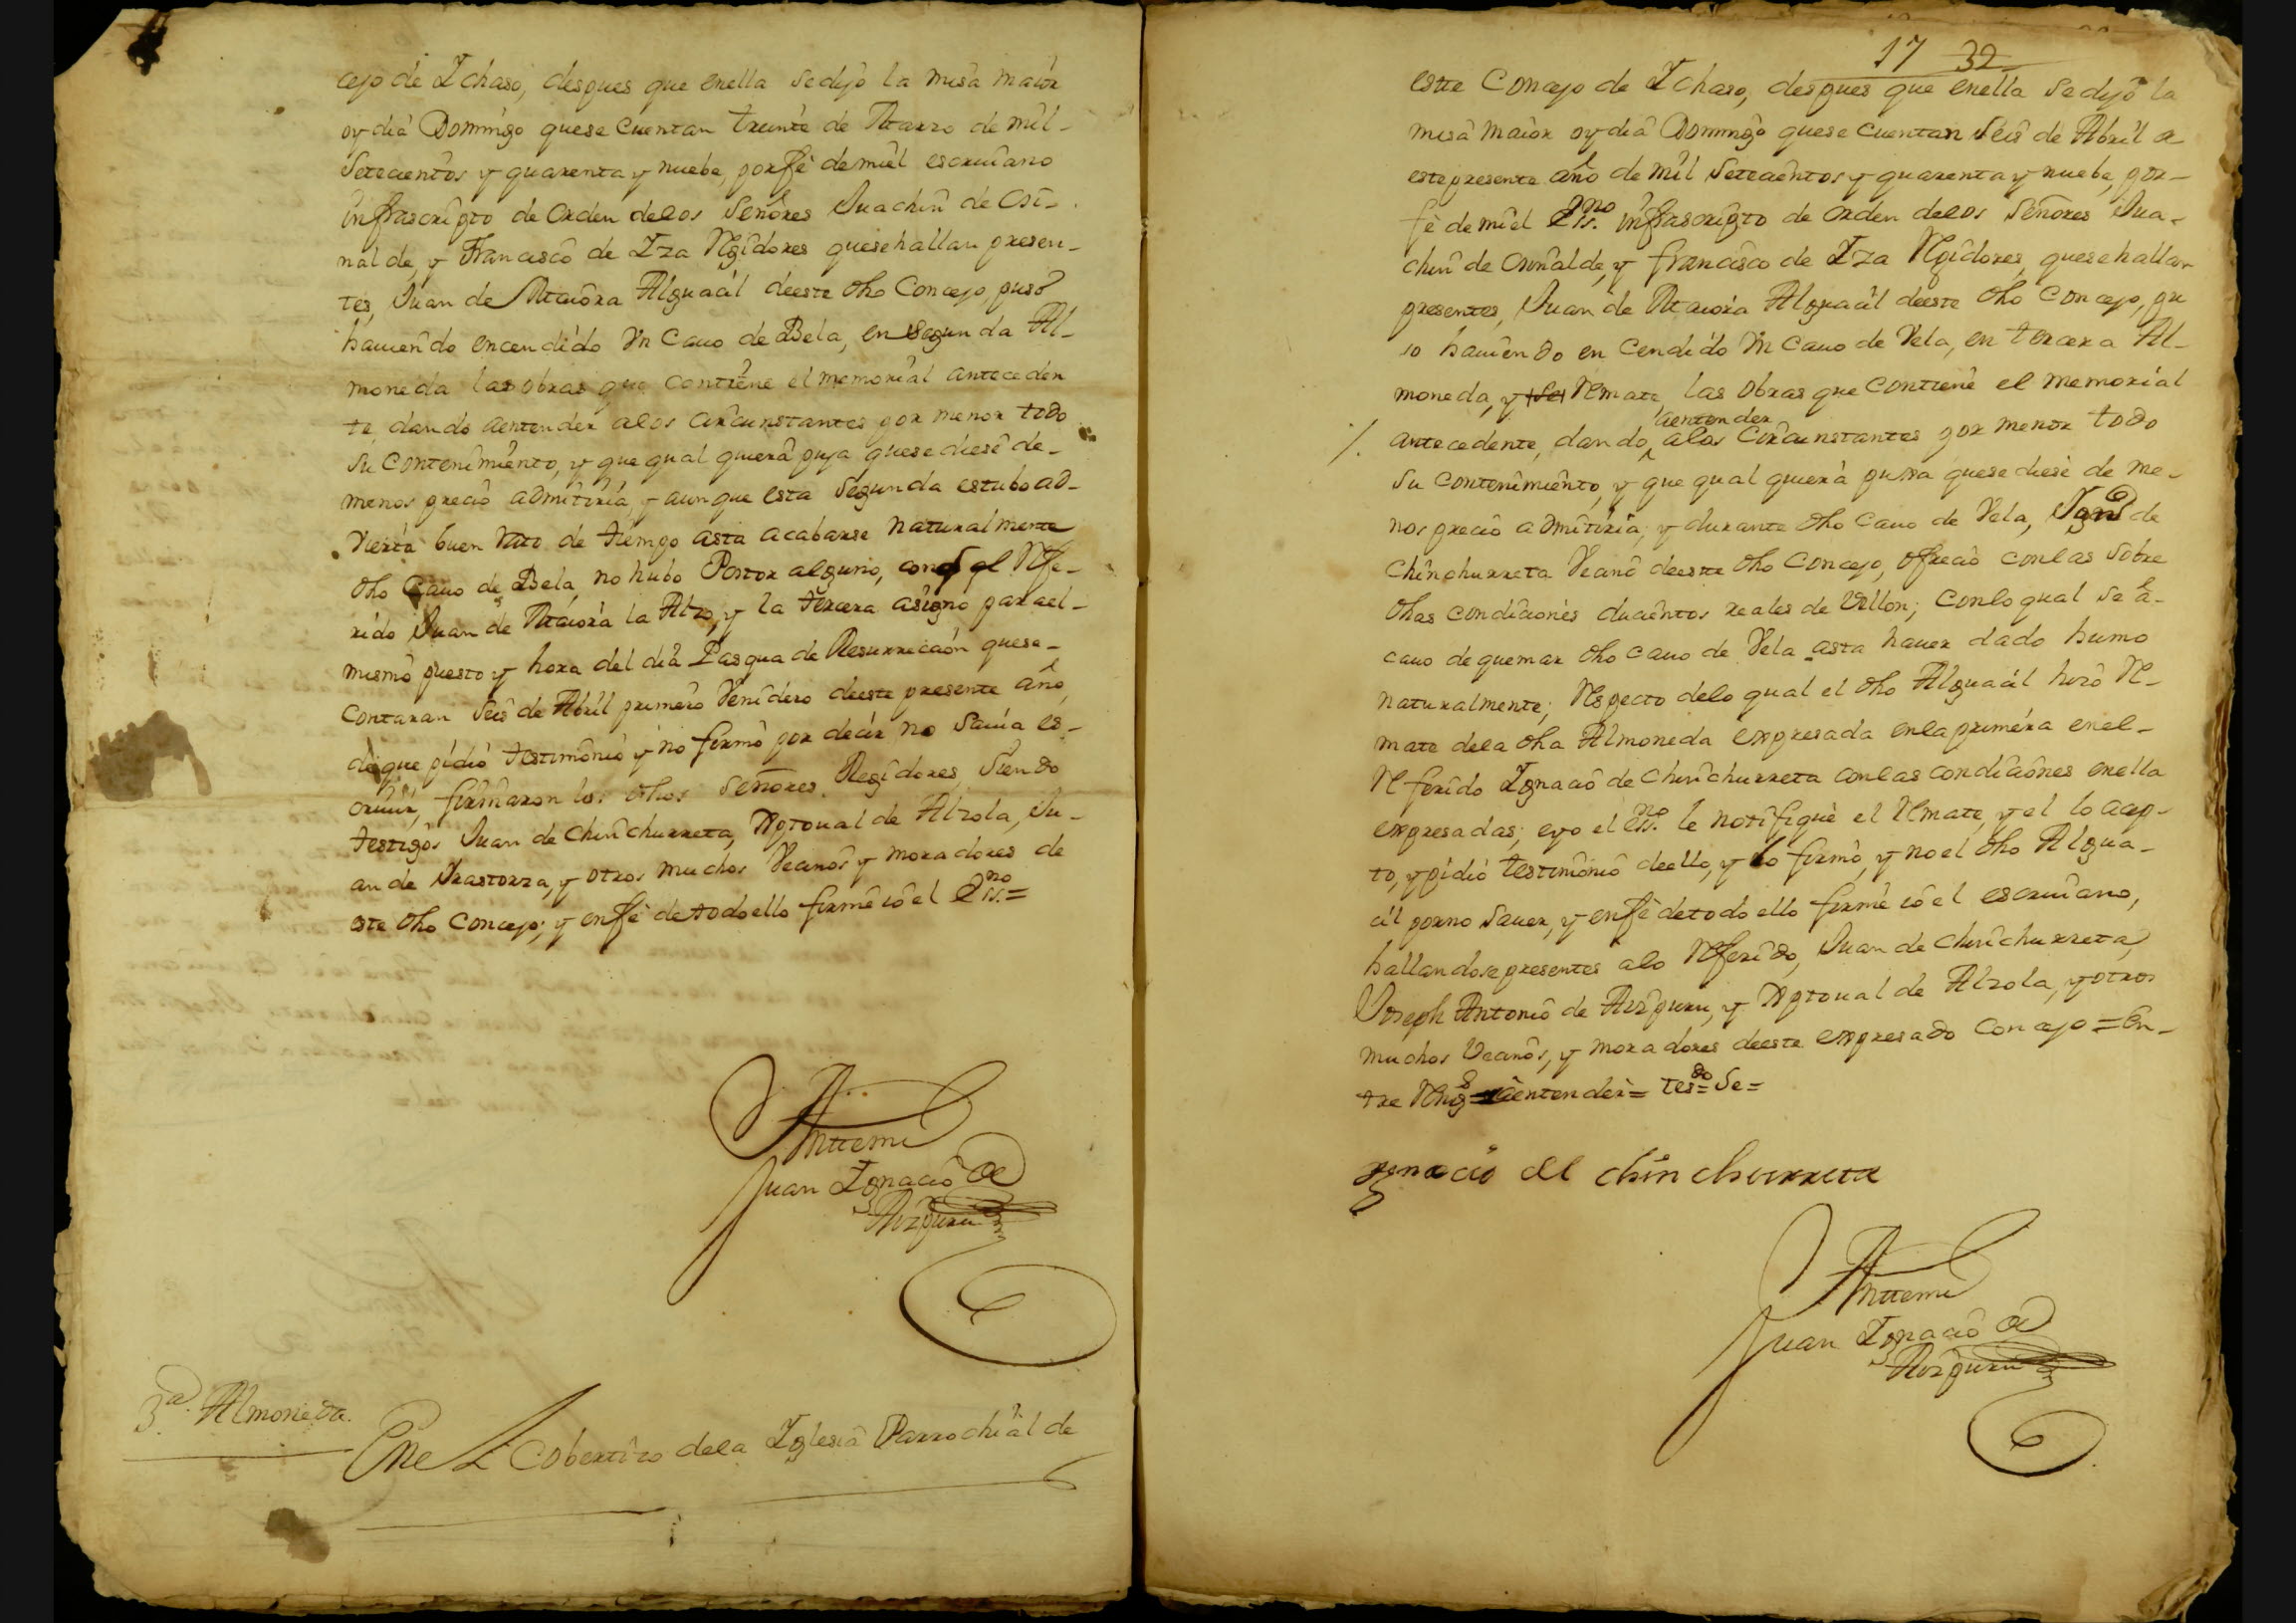 cejo de Ychaso, despues que enella sedijo la misa maior
oy dia Domingo quese cuentan treinta de Marzo de mil
setecientos y quarenta y nuebe, por fe de mi el escriuano
infrascripto de orden delos Señores Juachin de Osi-
nalde, y Francisco de Yza Regidores quese hallan presen-
tes, Juan de Maiora Alguacil deeste dho Concejo, puso
hauiendo encendido vn cauo de Bela, en segunda Al-
moneda las obras que contiene el memorial anteceden
te, dando aentender alos circunstantes por menor todo
su contenimiento, y que qual quiera puja quese diese de-
menos precio admitiria, y aunque esta segunda estubo ad-
vierta buen rato de tiempo asta acabarse naturalmente
dho cauo de Bela, no hubo Postor alguno, con q el Refe-
rido Juan de Maiora la Alzo, y la tercera asigno para el-
mismo puesto y hora del dia Pasqua de Resurreccion quese-
contaran seis de Abril primero Venidero deeste presente año,
deque pidio testimonio y no firmo por decir no sauia es-
criuir, firmaron los dhos Señores Regidores, siendo
testigos Juan de Chinchurreta, Xptoual de Alzola, Ju-
an de Vrastorza, y otros muchos Vecinos y moradores de
este dho Concejo; y enfe de todo ello firme io el Essno.=
Anttemi
Juan Ygnacio de
Aizpuru
3a. Almoneda.
Enel Cobertizo dela Yglesia Parrochial de
17 32
este Concejo de Ychaso, despues que enella sedijo la
misa maior oy dia Domingo quese cuentan seis de Abril de
este presente año de mil setecientos y quarenta y nuebe, por-
fe de mi el Essno. infrascripto de orden delos Señores Jua-
chin de Osinalde, y francisco de Yza Regidores, quese hallan
presentes, Juan de Maiora Alguacil deeste dho Concejo, pu
so hauiendo encendido vn cauo de Vela, en tercera Al-
moneda, y se Remate, las obras que contiene el memorial
aentender
antecedente, dando alos circunstantes por menor todo
su contenimiento, y que qual quiera puxa quese diese de me-
nos precio admitiria; y durante dho cauo de Vela, Igno de
Chinchurreta Vecino deeste dho Concejo, ofrecio con las sobre
dhas condiciones ducientos reales de Vellon; con lo qual se a-
cauo de quemar dho cauo de Vela asta hauer dado humo
naturalmente; Respecto delo qual el dho Alguacil hizo Re-
mate dela dha Almoneda expresada enla primera en el-
Referido Ygnacio de Chinchurreta conlas condiciones enella
expresadas; eyo el essno. le notifique el Remate, y el lo acep-
to, y pidio testimonio deello, y lo firmo, y no el dho Algua-
cil por no sauer, y enfe detodo ello firme io el escriuano,
hallandose presentes alo Referido, Juan de Chinchurreta,
Joseph Antonio de Aizpuru, y Xptoual de Alzola, y otros
muchos Vecinos, y moradores deeste expresado Concejo = En-
tre Rengs = aentender = tesdo = Se =
Ygnacio de chinchurreta
Anttemi
Juan Ygnacio de
Aizpuru